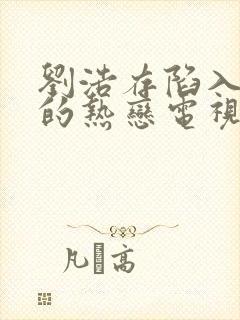 劉浩存陷入
的熱戀電視
凡高